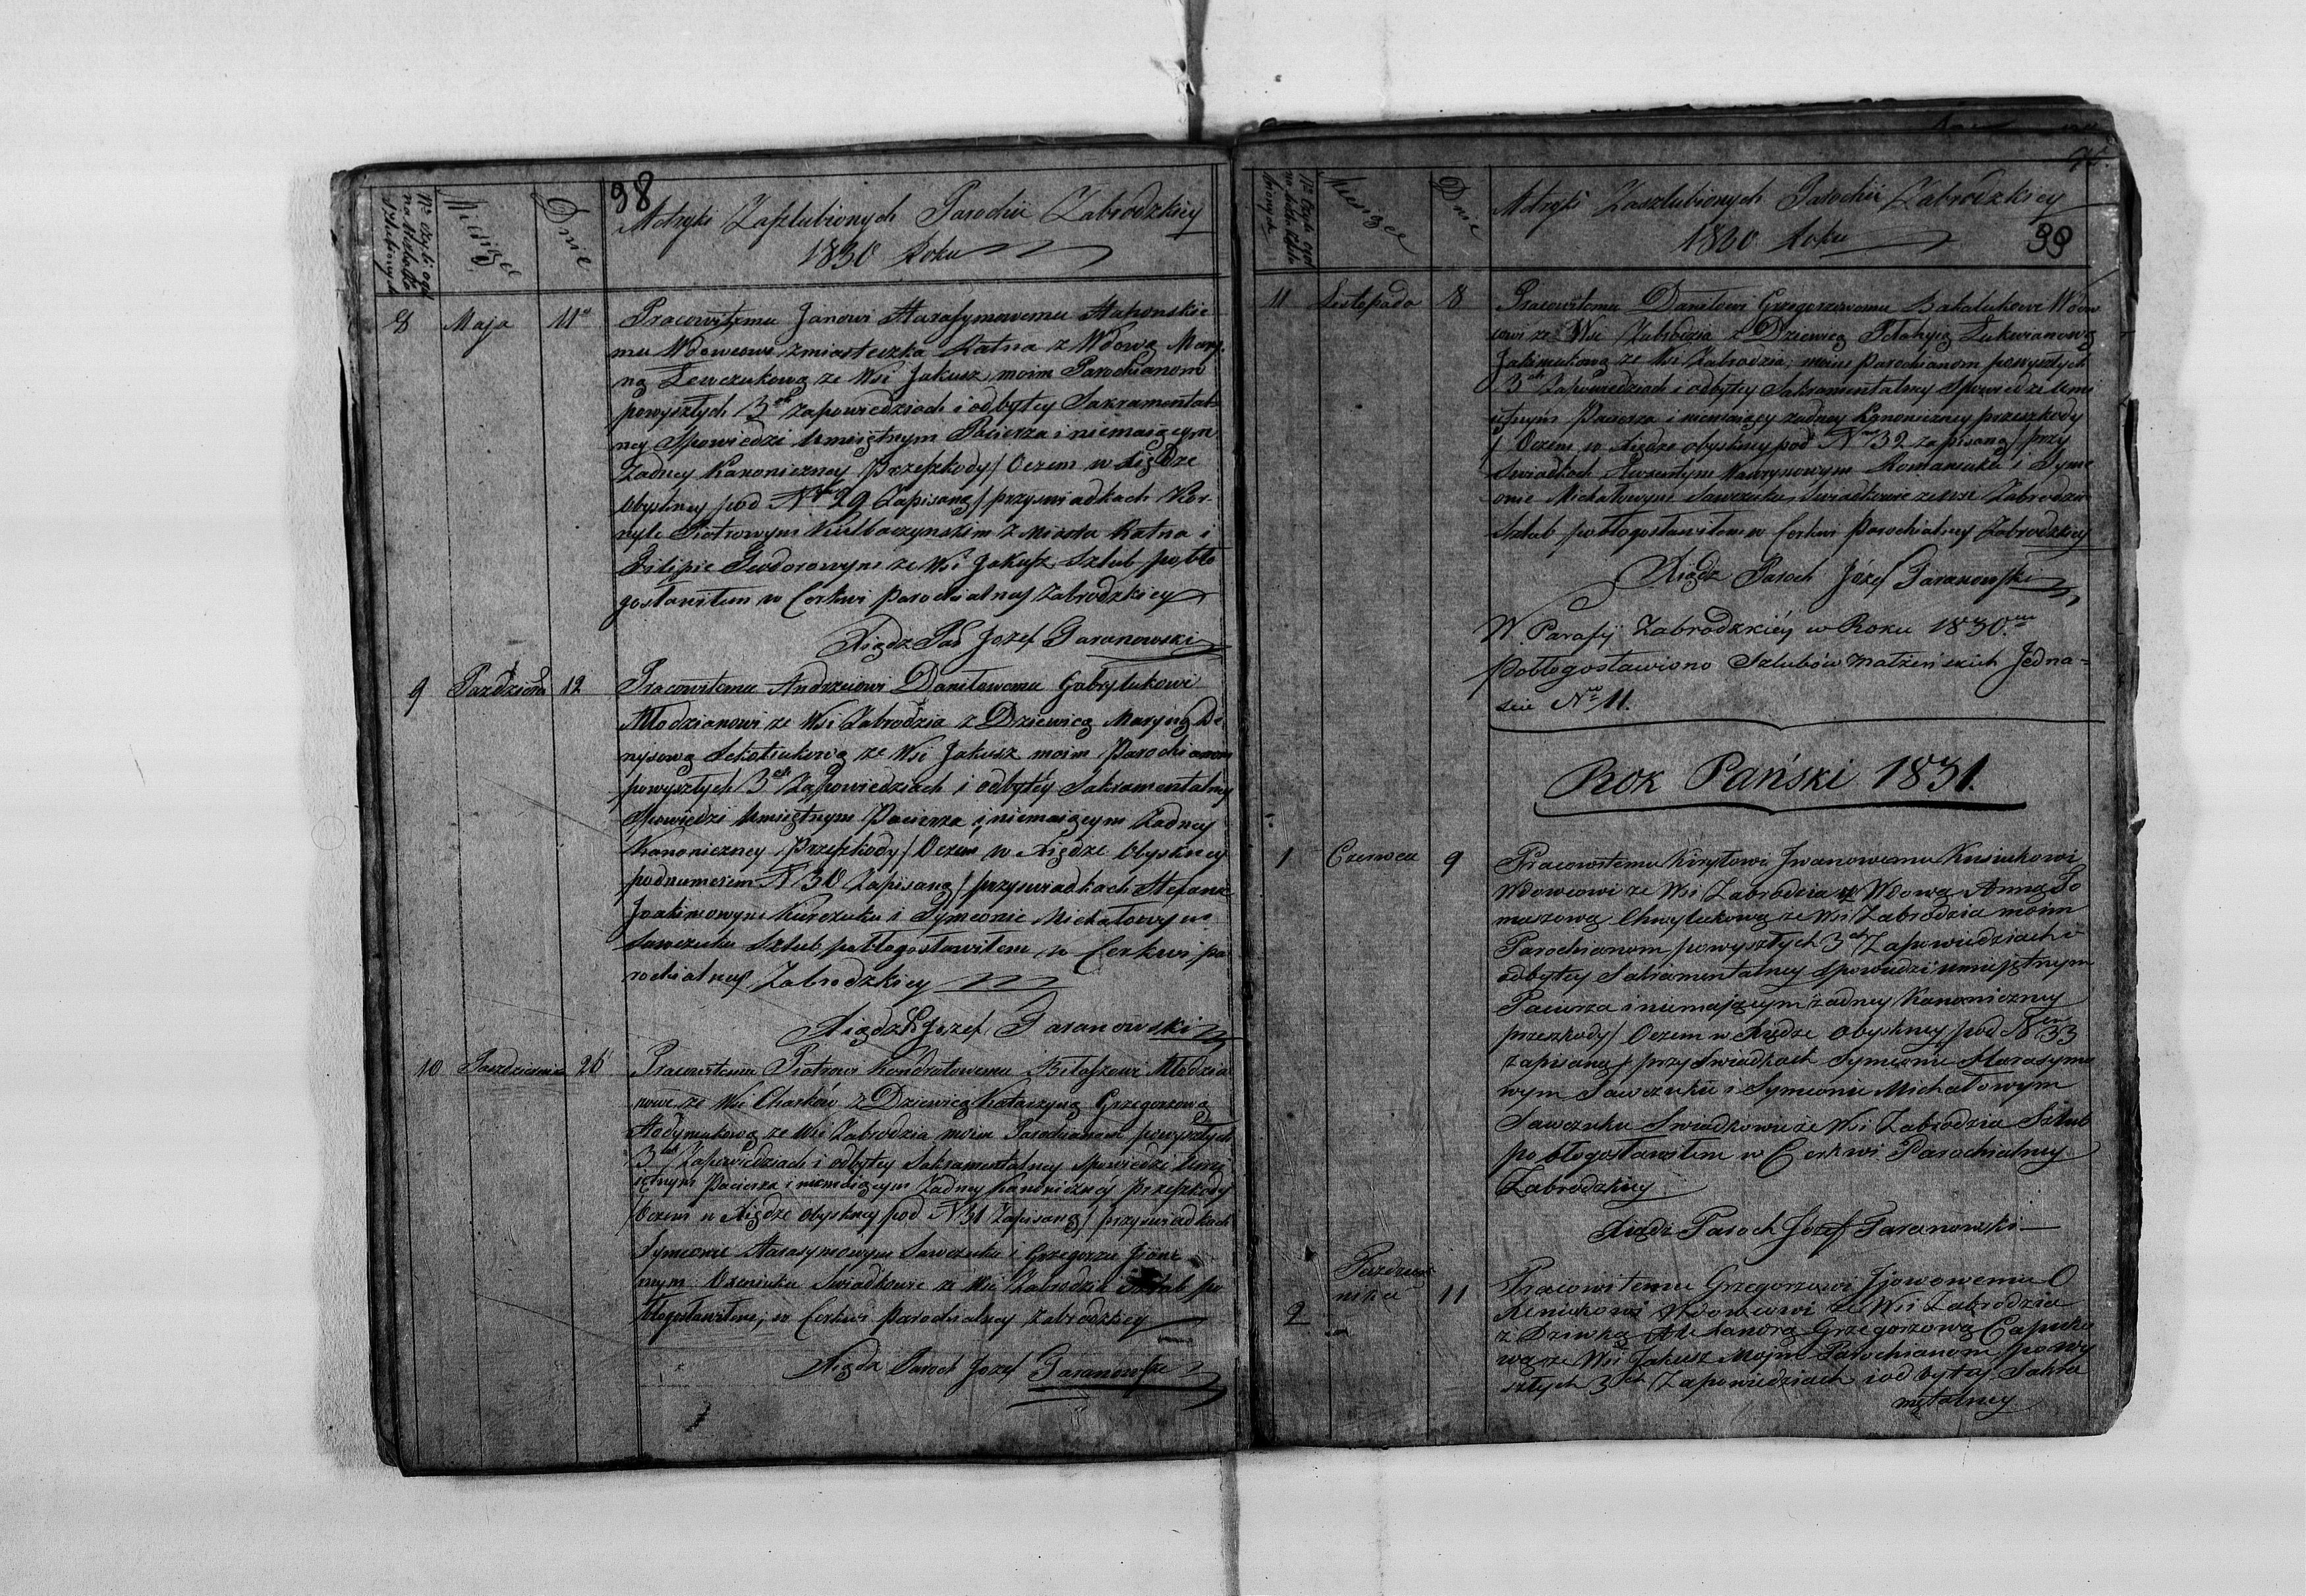 98
Metryki Zaszlubionych Parochii Zabrodzkiey
1830 Roku
Miesiące
Dnie
8 Maja 11
Pracowitemu Janowi Harasymowemu
mu Wdowcowi z miasteczka Ratna z Wdową Mary-
ną Lewczukową ze Wsi Jakusz moim Parochianom
powyszłych 3ch zapowiedziach i odbytey Sakramental-
ney Spowiedzi Umiejętnym Pacierza i niemaiącym
Żadney Kanoniczney Przeszkody / Oczem w Xiędze
Obyskney pod Nr 29 Zapisaną / przy swiadkach Kor-
nyle Piotrowym z Miasta Ratna i
Filipie Fedorowym ze Wsi Jakusz Szlub pobło
gosławiłem w Cerkwi Parochialney Zabrodzkiey
Xiądz Józef Taranowski
9 12
Pracowitemu Andrzeiowi Daniłowemu Gabrylukowi
Młodzianowi ze Wsi Zabrodzia z Dziewicą Maryną De
nysową ze Wsi Jakusz moim Parochianom
powyszłych 3ch Zapowiedziach i odbytey Sakramentalney
Spowiedzi Umiejętnym Pacierza i niemaiącym Żadney
Kanoniczney Przeszkody / Oczem w Xiędze Obyskney
pod numerem N 30 Zapisaną / przy swiadkach Stefanie
Joakimowym i Symeonie Michałowym
Sawczuku Szlub pobłogosławiłem w Cerkwi pa
rochialney Zabrodzkiey
Xiądz Józef Taranowski
10 26
Pracowitemu Piotrowi Kondratowemu Młodzia
nowi ze Wsi z Dziewicą Katarzyną Grzegorzową
ze Wsi Zabrodzia moim Parochianom powyszłych
3ch Zapowiedziach i odbytey Sakramentalney Spowiedzi Umiej
iętnym Pacierza i niemaiącym Żadney Kanoniczney Przeszkody
/ Oczem w Xiędze obyskney pod N 31 Zapisaną / przy swiadkach
Symeonie Harasymowym Sawczuku i Grzegorzu
Swiadkowie ze Wsi Zabrodzia Szlub po
błogosławiłem w Cerkwi Parochialney Zabrodzkiey
Xiądz Paroch Józef Taranowski
Miesiące
Dnie
Metryki Zaszlubionych Parochii Zabrodzkiey
1830 Roku 99
11 Listopada 8
Pracowitemu Daniłowi Grzegorzowemu Wdow
cowi ze Wsi Zabrodzia z Dziewicą Pelahyią Łukianową
ze Wsi Zabrodzia, moim Parochianom powyszłych
3ch Zapowiedziach i odbytey Sakramentalney Spowiedzi Umi
iętnym Pacierza i niemaiący żadney Kanoniczney przeszkody
/ Oczem w Xiędze obyskney pod N 32 zapisaną / przy
Swiadkach Wawrynowym Romaniuku i Syme
onie Michałowym Sawczuku Swiadkowie ze Wsi Zabrodzia
Szlub pobłogosławiłem w Cerkwi Parochialney Zabrodzkiey
Xiądz Paroch Józef Taranowski
W Parafij Zabrodzkiéy w Roku 1830m
Pobłogosławiono Szlubów Małżeńskich Jedna=
scie No 11.
Rok Pański 1831.
1 Czerwca 9
Pracowitemu Kiryłowi Jwanowemu Kusiukowi
Wdowcowi ze Wsi Zabrodzia z Wdową Anną To
maszową ze Wsi Zabrodzia moim
Parochianom powyszłych 3ch Zapowiedziach i
odbytey Sakramentalney Spowiedzi umiejętnym
Pacierza i niemającym żadney Kanoniczney
przeszkody / Oczem w Xiędze Obyskney pod N 33
zapisaną / przy Swiadkach Symeonie Harasymo
wym Sawczuku i Symeonie Michałowym
Sawczuku Swiadkowie ze Wsi Zabrodzia Szlub
pobłogosławiłem w Cerkwi Parochialney
Zabrodzkiey
Xiądz Paroch Józef Taranowski
2 Pazdzier
nika 11
Pracowitemu Grzegorzowi O
Wdowcowi ze Wsi Zabrodzia
z Dziewką Alexandrą Grzegorzową
wą ze Wsi Jakusz Moim Parochianom powy
szłych 3ch Zapowiedziach i odbytej Sakra
mętalney